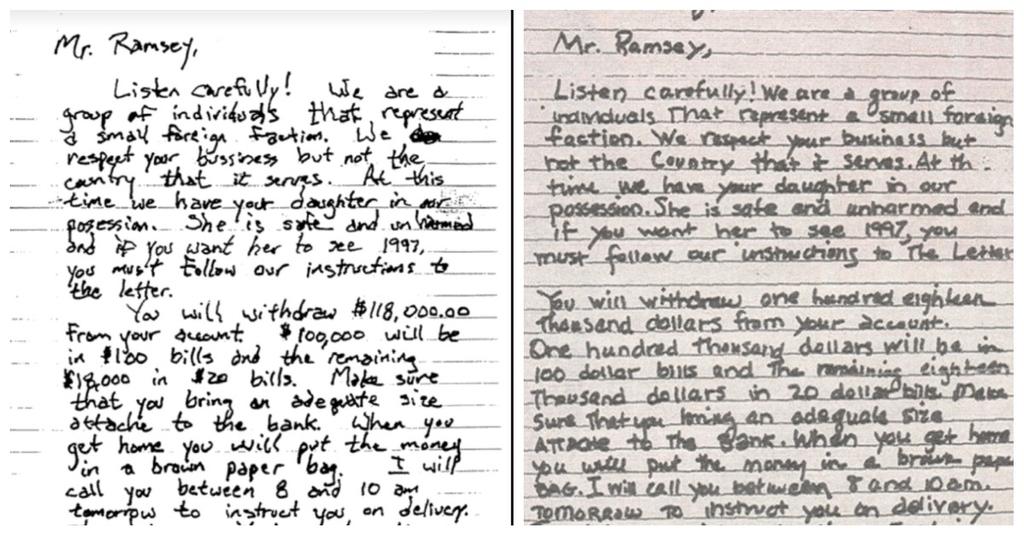 Mr. Ramsey,
Listen carefully! We are a
group of individuals that represent
a small foreign faction. We
respect your bussiness but not the
country that it serves. At this
time we have your daughter in our
posession. She is safe and unharmed
and if you want her to see 1997,
you must follow our instructions to
the letter.
You will withdraw $118,000.00
from your account. $100,000 will be
in $100 bills and the remaining
$18,000 in $20 bills. Make sure
that you bring an adequate size
attache to the bank. When you
get home you will put the money
in a brown paper bag. I will
call you between 8 and 10 am
tomorrow to instruct you on delivery.
Mr. Ramsey,
Listen carefully! We are a group of
individuals That represent a small foreign
faction. We respect your business but
not the Country that it serves. At th
time we have your daughter in our
possession. She is safe and unharmed and
if you want her to see 1997, you
must follow our instructions to The Letter
You will withdraw one hundred eighteen
Thousand dollars from your account.
One hundred Thousand dollars will be in
100 dollar bills and The remaining eighteen
Thousand dollars in 20 dollar bills. Make
sure That you bring an adequate size
ATTACHE to The Bank. When you get home
you will put the money in a brown pape
BAG. I will call you between 8 and 10 am.
TOMORROW TO instruct you on delivery.